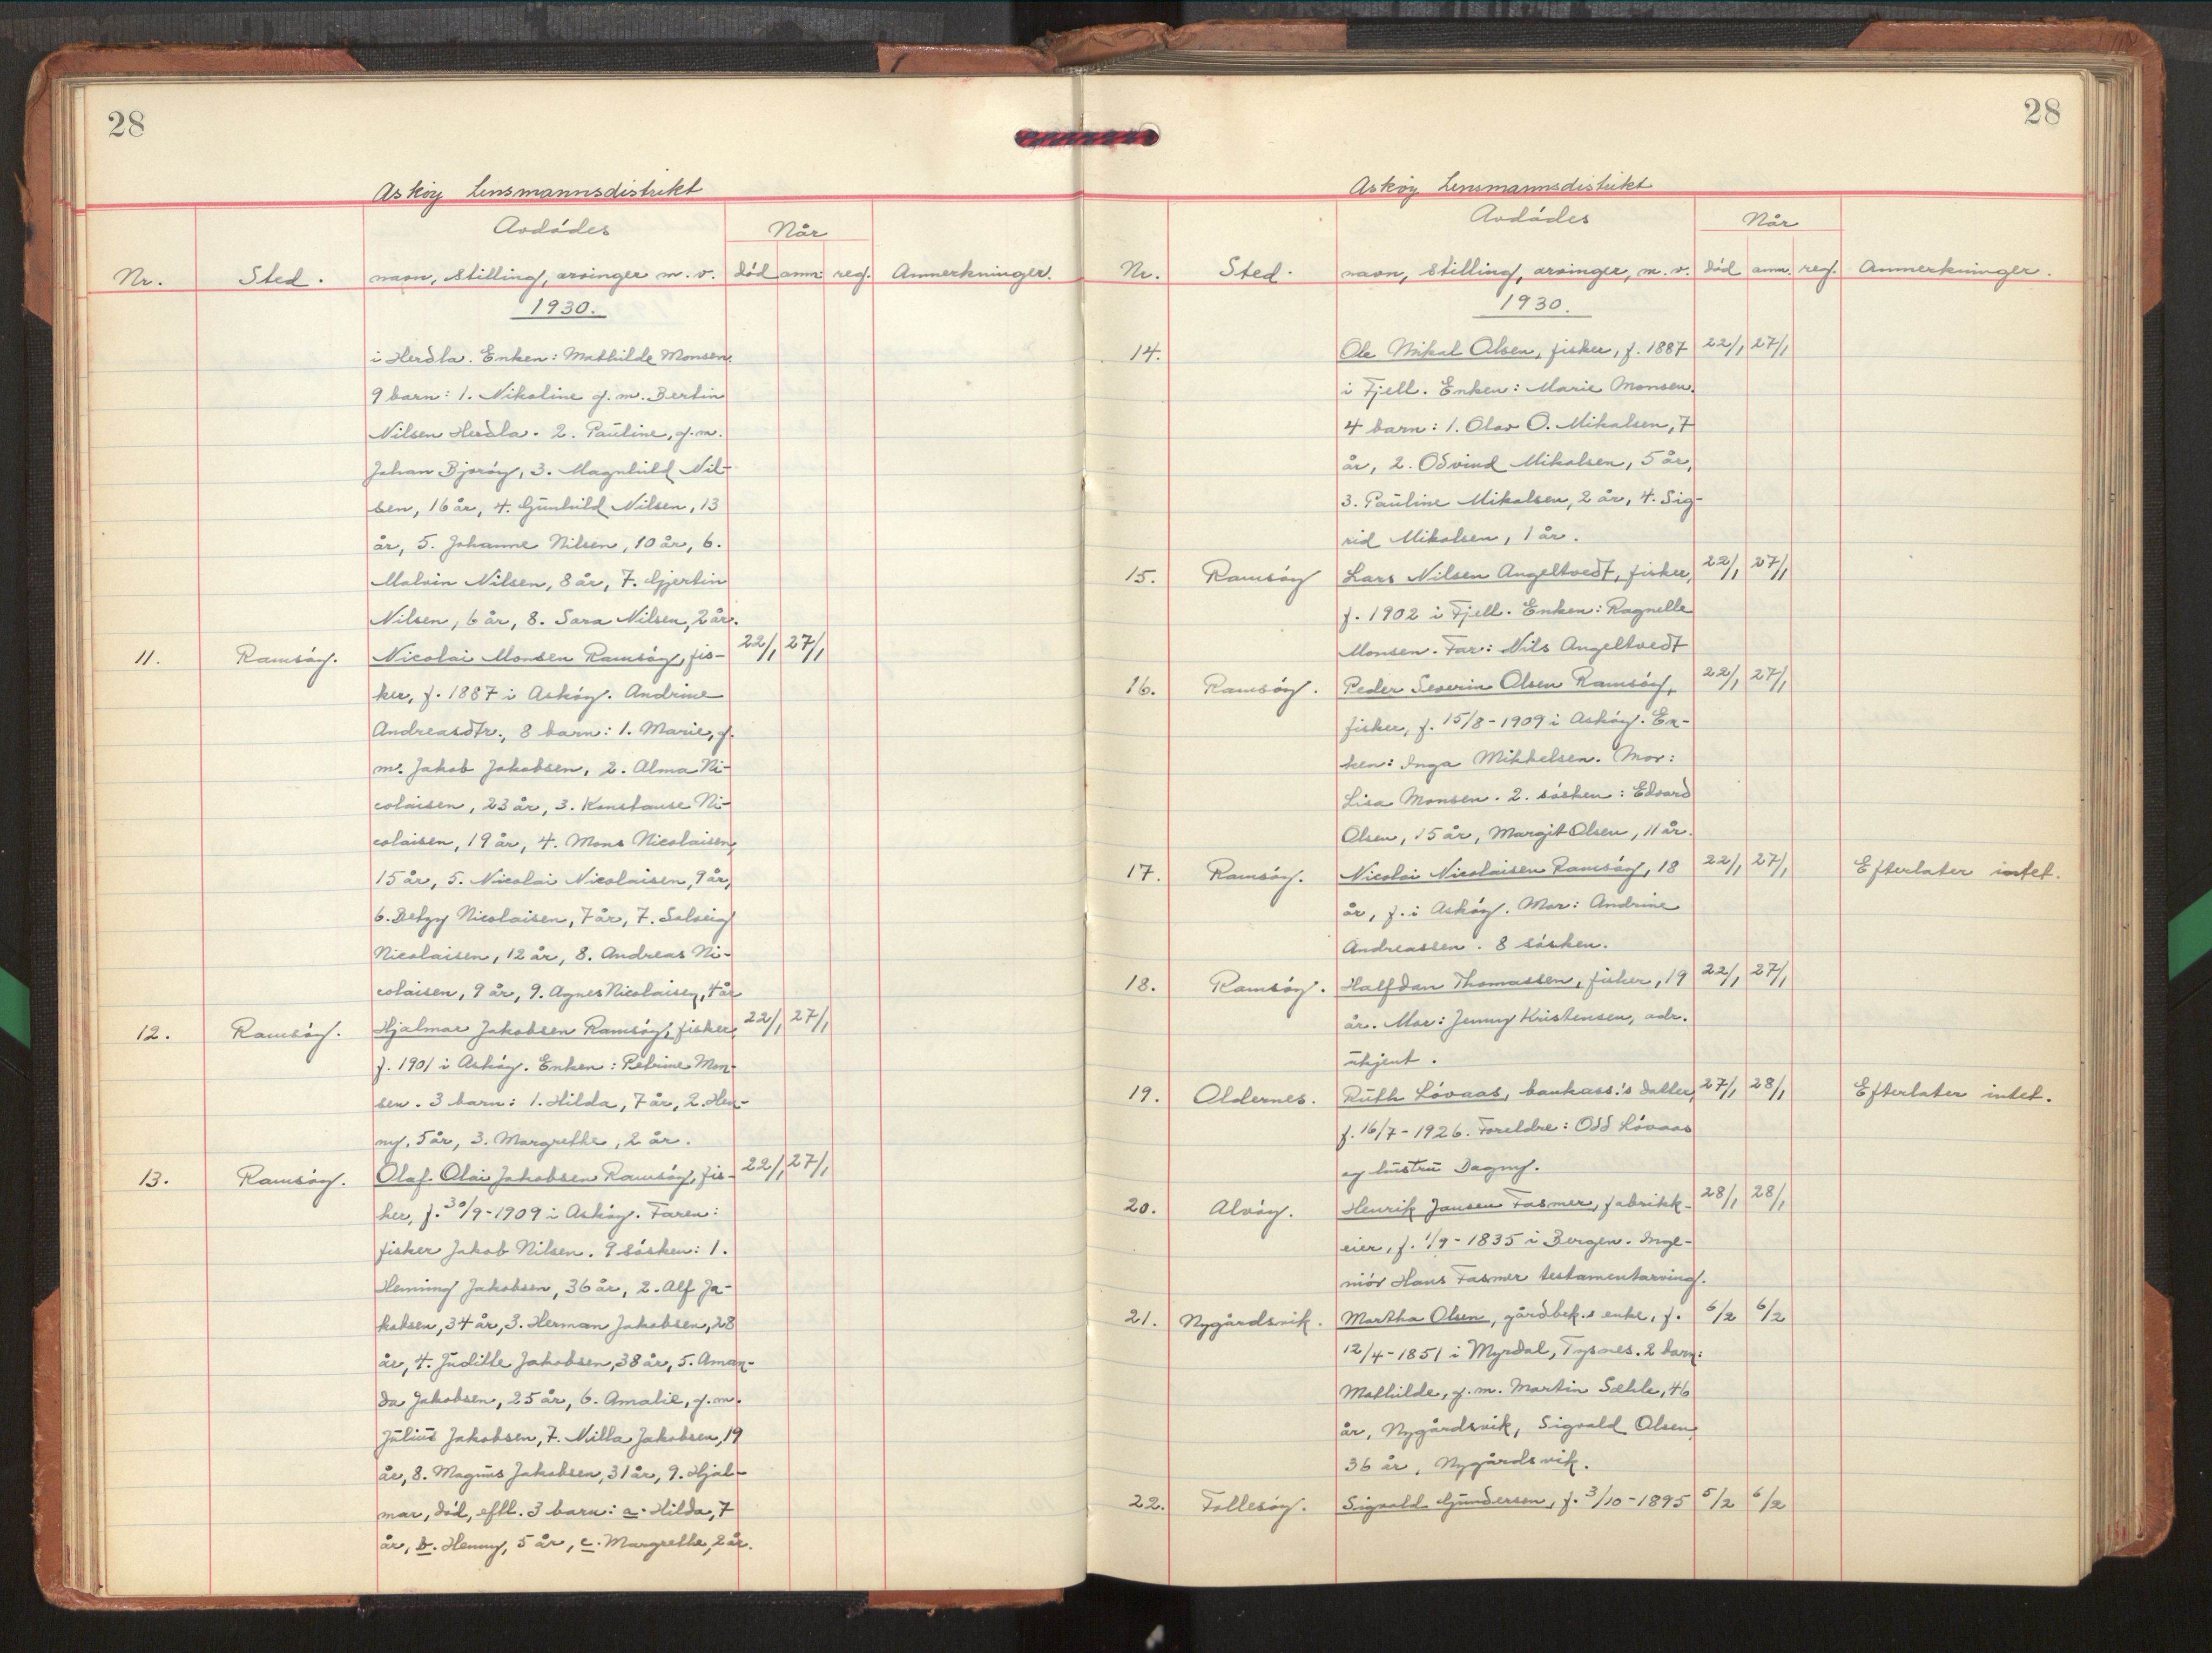 28
Askøy Lensmannsdistrikt
Avdødes
Når
Nr. Sted. navn, stilling, arvinger m.v. død anm. reg. Anmerkninger.
1930.
i Herdla. Enken: Mathilde Monsen.
9 barn: 1. Nikoline g.m. Bertin
Nilsen Herdla. 2. Pauline, g.m.
Johan Bjorøy, 3. Magnhild Nil-
sen, 16 år, 4. Gunhild Nilsen, 13
år, 5. Johanne Nilsen, 10 år, 6.
Malvin Nilsen, 8 år, 7. Gjertin
Nilsen, 6 år, 8. Sara Nilsen, 2 år.
11. Ramsøy. Nicolai Monsen Ramsøy, fis- 22/1 27/1
ker, f. 1887 i Askøy. Andrine
Andreasdtr., 8 barn: 1. Marie, g.
m. Jakob Jakobsen, 2. Alma Ni-
colaisen, 23 år, 3. Konstanse Ni-
colaisen, 19 år, 4. Mons Nicolaisen,
15 år, 5. Nicolai Nicolaisen, 9 år,
6. Betzy Nicolaisen, 7 år, 7. Solveig
Nicolaisen, 12 år, 8. Andreas Ni-
colaisen, 9 år, 9. Agnes Nicolaisen, 4 år
12. Ramsøy. Hjalmar Jakobsen Ramsøy, fisker, 22/1 27/1
f. 1901 i Askøy. Enken: Petrine Mon-
sen. 3 barn: 1. Hilda, 7 år, 2. Hen-
ny, 5 år, 3. Margrethe, 2 år.
13. Ramsøy. Olaf Olai Jakobsen Ramsøy, fis- 22/1 27/1
ker, f. 30/9-1909 i Askøy. Faren:
fisker Jakob Nilsen. 9 søsken: 1.
Henning Jakobsen, 36 år, 2. Alf Ja-
kobsen, 34 år, 3. Herman Jakobsen, 28
år, 4. Judithe Jakobsen, 38 år, 5. Aman-
da Jakobsen, 25 år, 6. Amalie, g.m.
Julius Jakobsen, 7. Milla Jakobsen, 19
år, 8. Magnus Jakobsen, 31 år, 9. Hjal-
mar, død, eftl. 3 barn: a. Hilda, 7
år, b. Henny, 5 år, c. Margrethe, 2 år.
28
Askøy Lensmannsdistrikt
Avdødes
Når
Nr. Sted. navn, stilling, arvinger, m.v. død anm. reg. Anmerkninger.
1930.
14. Ole Mikal Olsen, fisker, f. 1887 22/1 27/1
i Fjell. Enken: Marie Monsen.
4 barn: 1. Olav O. Mikalsen, 7
år, 2. Odvind Mikalsen, 5 år,
3. Pauline Mikalsen, 2 år, 4. Sig-
rid Mikalsen, 1 år.
15. Ramsøy Lars Nilsen Angeltvedt, fisker, 22/1 27/1
f. 1902 i Fjell. Enken: Ragnelle
Monsen. Far: Nils Angeltvedt
16. Ramsøy. Peder Severin Olsen Ramsøy, 22/1 27/1
fisker, f. 15/8-1909 i Askøy. En-
ken: Inga Mikkelsen. Mor:
Lisa Monsen. 2. søsken: Edvard
Olsen, 15 år, Margit Olsen, 11 år.
17. Ramsøy. Nicolai Nicolaisen Ramsøy, 18 22/1 27/1 Efterlater intet.
år, f. i Askøy. Mor: Andrine
Andreassen. 8 søsken.
18. Ramsøy. Halfdan Thomassen, fisker, 19 22/1 27/1
år. Mor: Jenny Kristensen, adr.
ukjent.
19. Oldernes. Ruth Løvaas, bankass.'s datter, 27/1 28/1 Efterlater intet.
f. 16/7-1926. Foreldre: Odd Løvaas
og hustru Dagny.
20. Alvøy. Henrik Jansen Fasmer, fabrikk- 28/1 28/1
eier, f. 1/9-1835 i Bergen. Inge-
niør Hans Fasmer testamentarving.
21. Nygårdsvik. Martha Olsen, gårdbek.s enke, f. 6/2 6/2
12/4-1851 i Myrdal, Tysnes. 2 barn:
Mathilde, g.m. Martin Sæhle, 46
år, Nygårdsvik, Sigvald Olsen,
36 år, Nygårdsvik.
22. Follesøy. Sigvald Gundersen, f. 3/10-1895 5/2 6/2